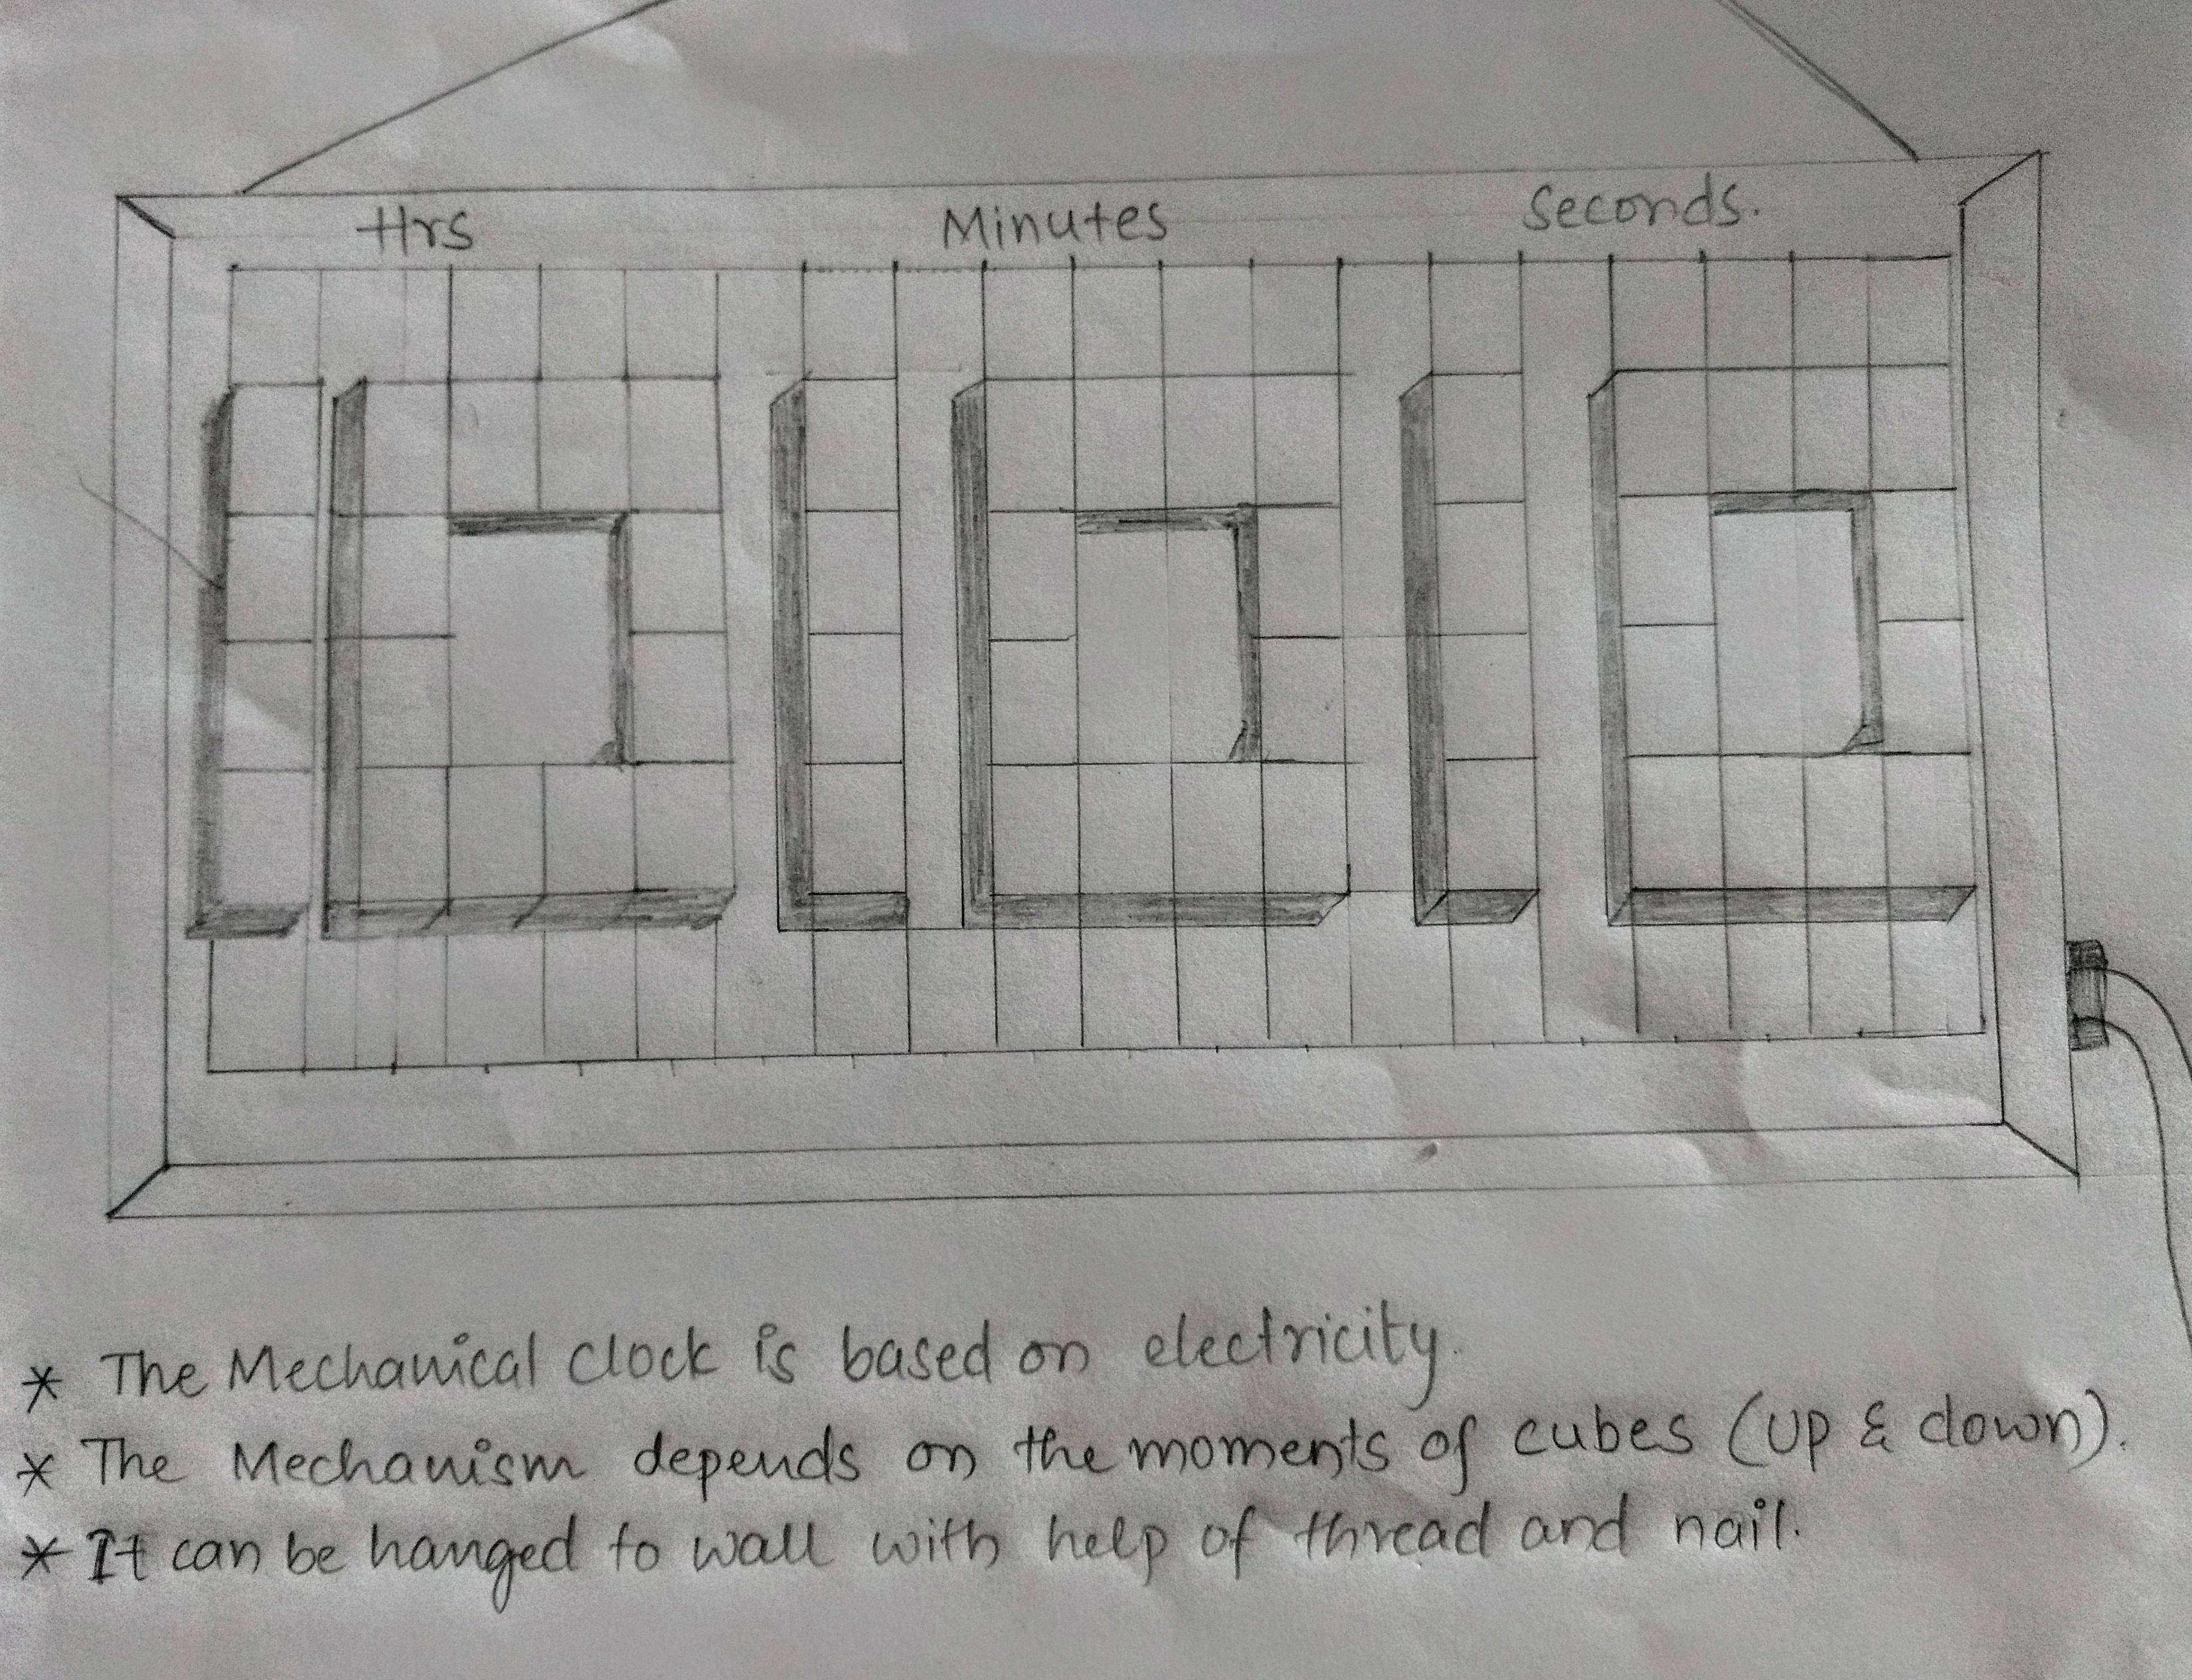 Hrs Minutes Seconds.
10 10 10
* The Mechanical clock is based on electricity.
* The Mechanism depends on the moments of cubes (up & down).
* It can be hanged to wall with help of thread and nail.